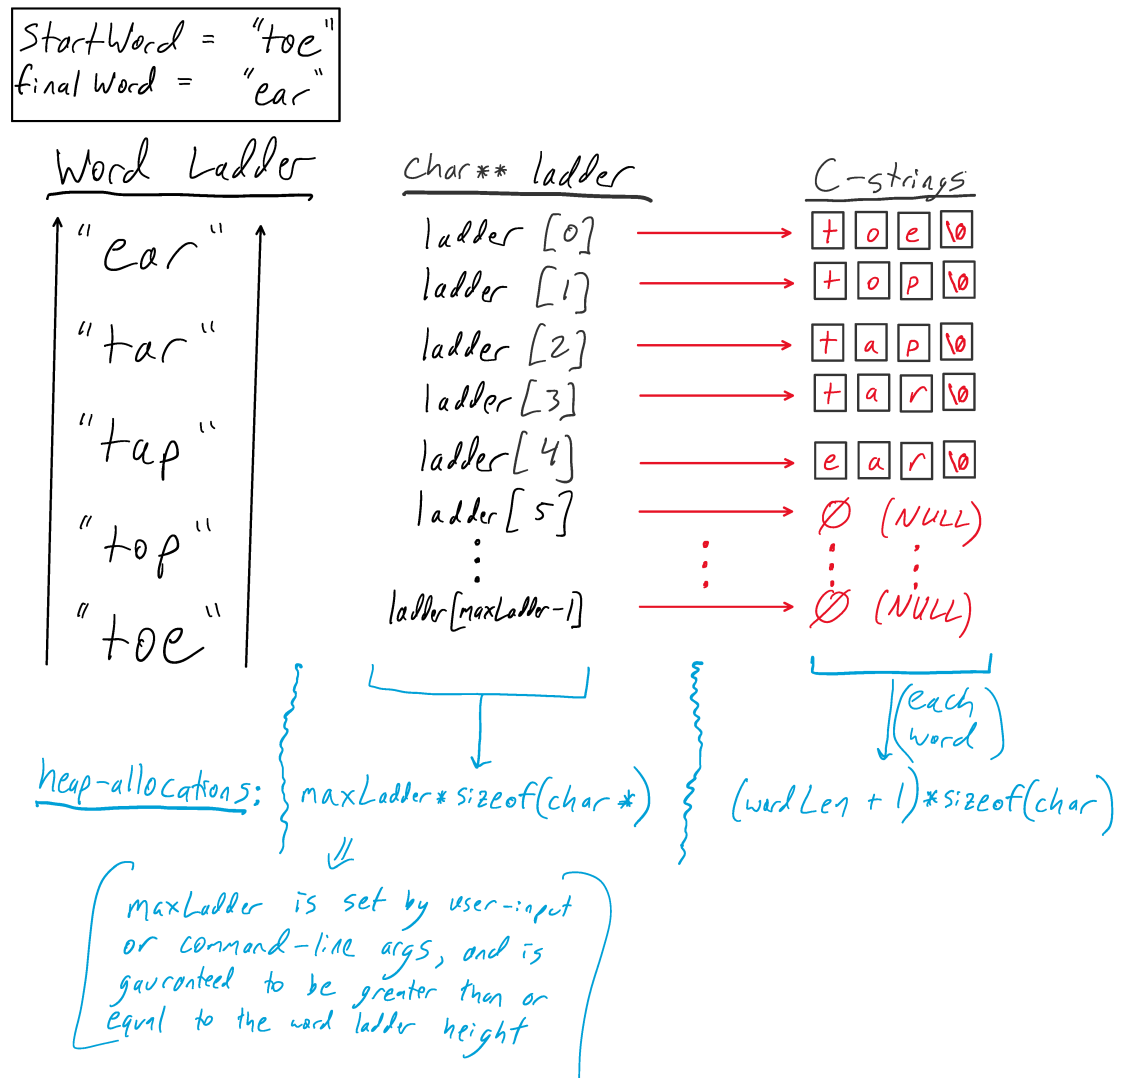 StartWord = "toe"
final Word = "ear"
Word Ladder
"ear"
"tar"
"tap"
"top"
"toe"
char** ladder
ladder [0]
ladder [1]
ladder [2]
ladder [3]
ladder [4]
ladder [5]
ladder[maxLadder-1]
C-strings
t o e \0
t o p \0
t a p \0
t a r \0
e a r \0
∅ (NULL)
∅ (NULL)
heap-allocations:
maxLadder * sizeof(char *)
(each
word)
(wordLen + 1)*sizeof(char)
maxLadder is set by user-input
or command-line args, and is
gauranteed to be greater than or
equal to the word ladder height